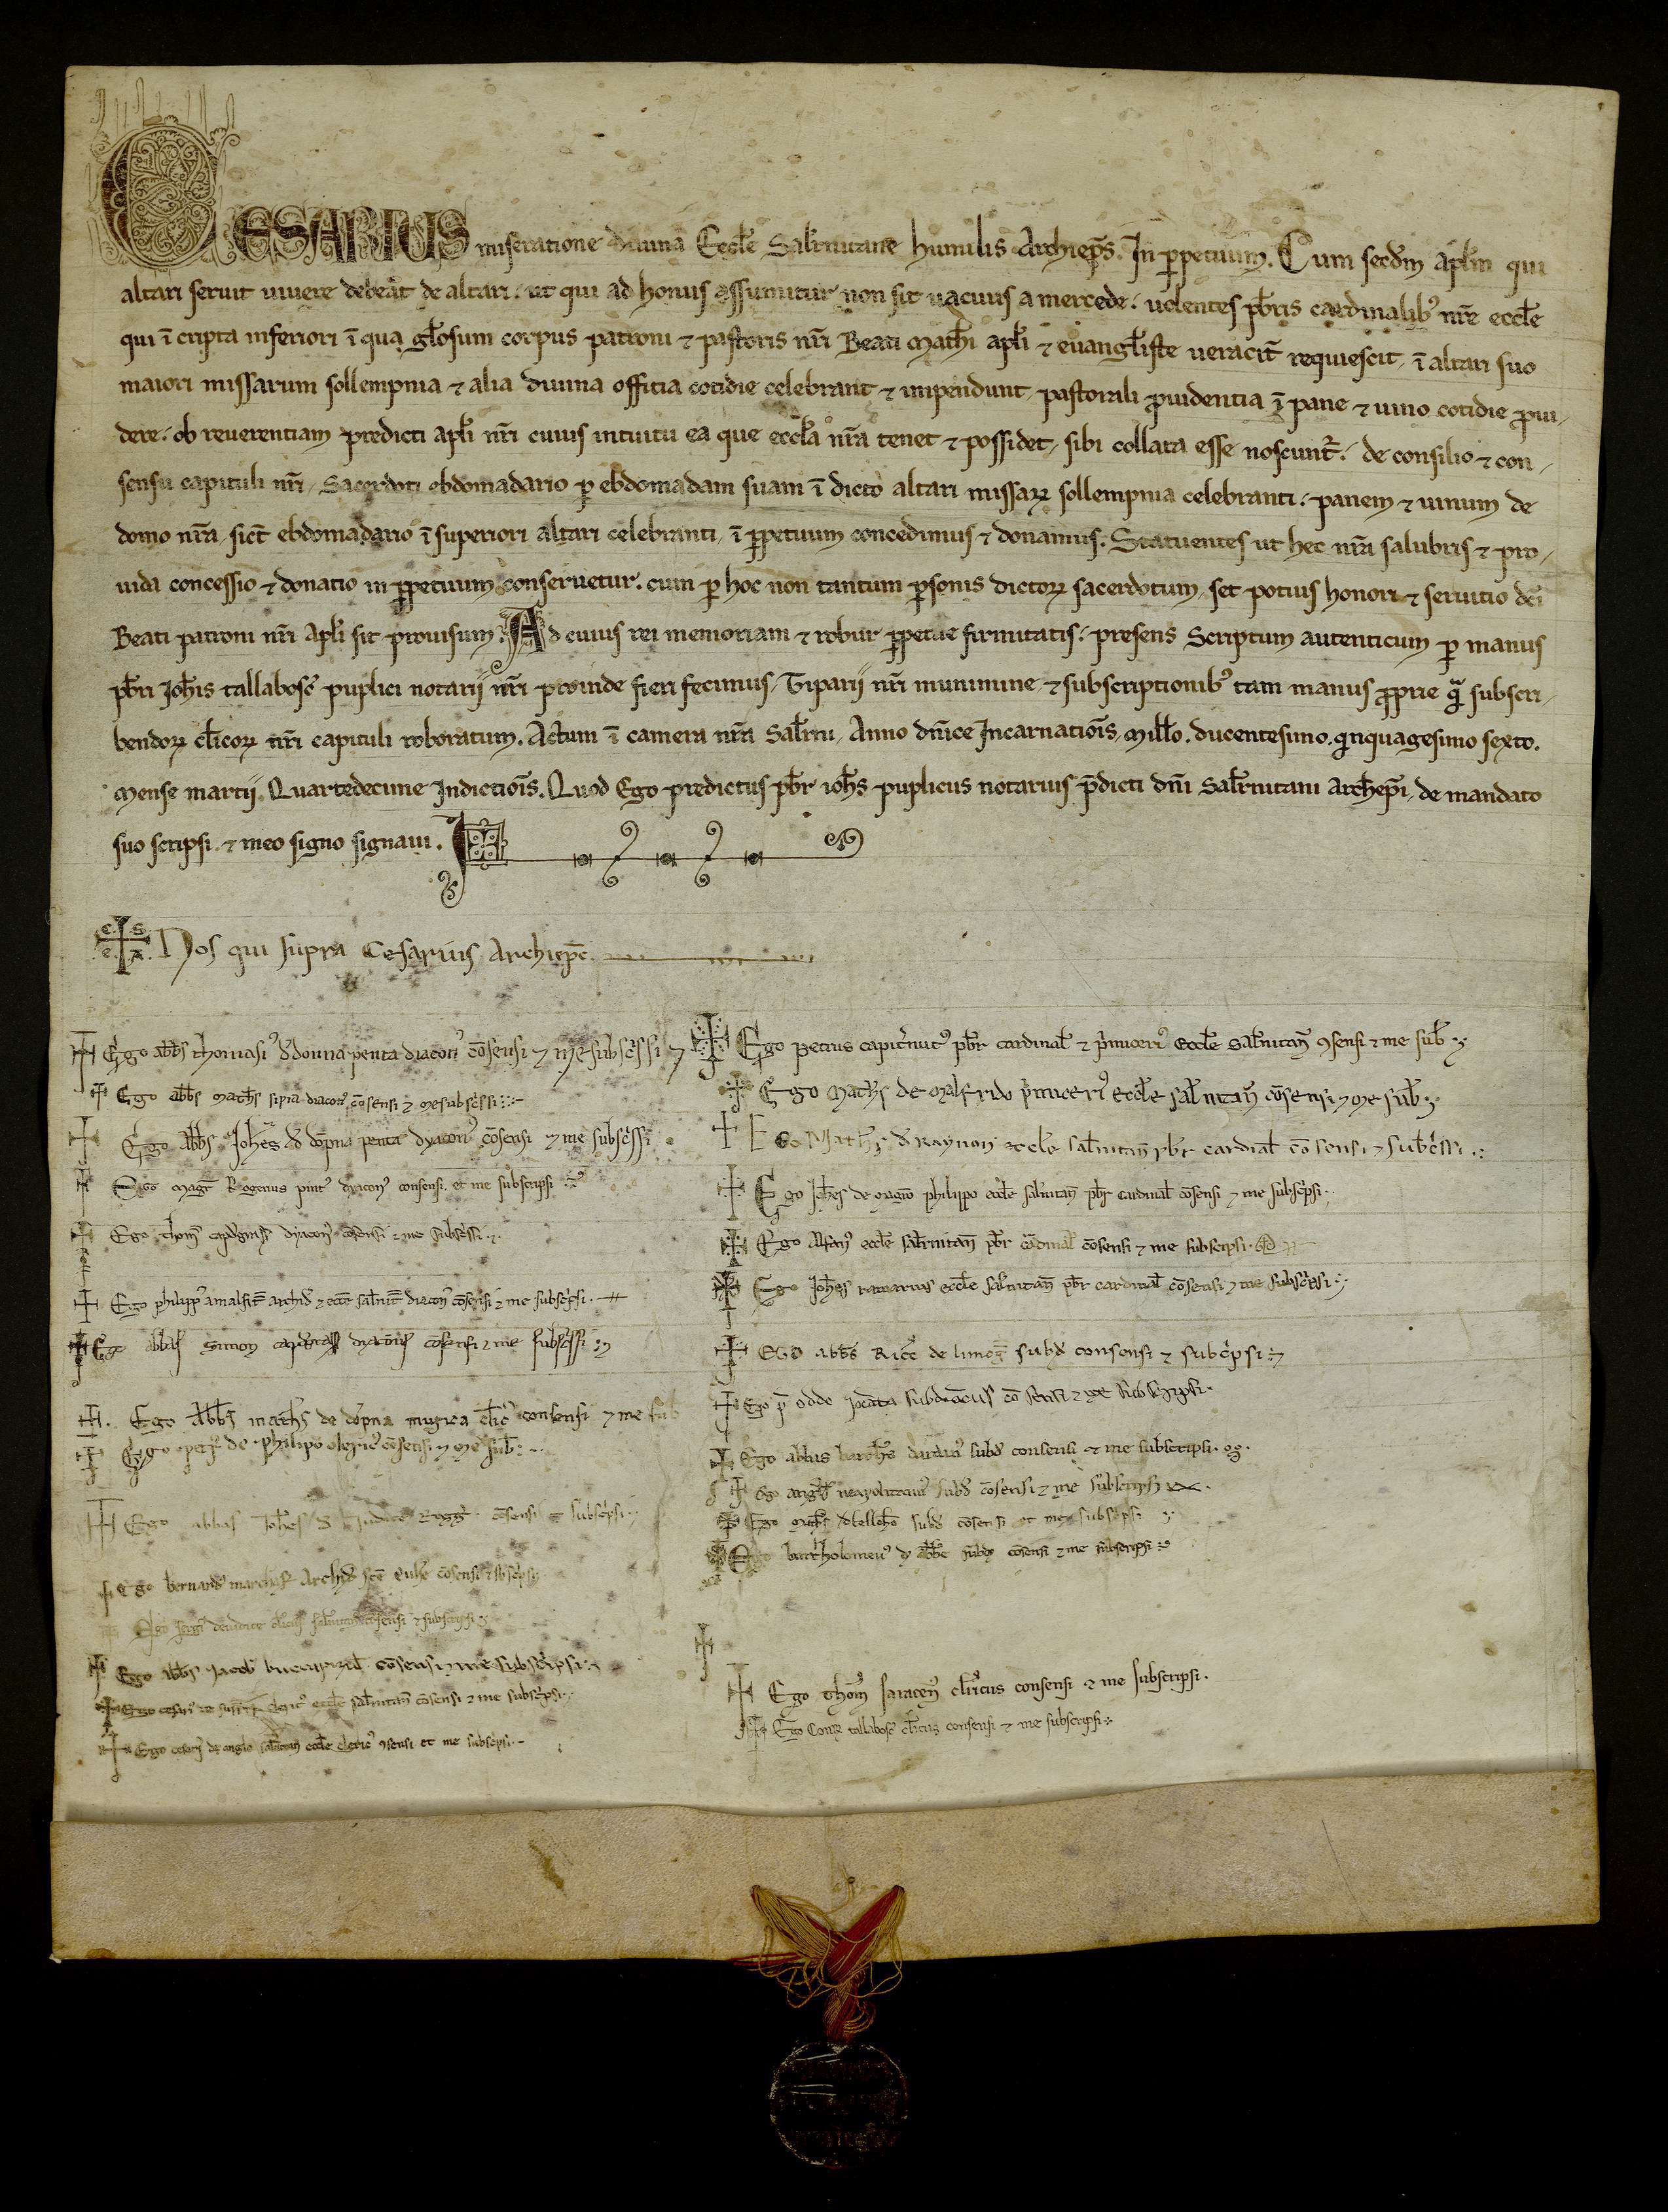 CESARIUS miseratione diuina Eccl̄e Sal̄rnitane humilis Archiep̄s. In p̱petuum. Cum secd̄m Ap̄lm qui
altari seruit uiuere debeat de altari. ut qui ad honus assumitur non sit uacuus a mercede. uolentes p̄bris cardinalib᾽ nr̄e eccl̄e
qui ī cripta inferiori ī qua gl̄osum corpus patroni ⁊ pastoris nr̄i Beati Math̄i apl̄i ⁊ euangl̄iste ueracit̄ requiescit, ī altari suo
maiori missarum sollempnia ⁊ alia diuina officia cotidie celebrant ⁊ impendunt, pastorali ꝓuidentia ī pane ⁊ uino cotidie ꝓui-
dere. ob reuerentiam predicti apl̄i nr̄i cuius intuitu ea que eccl̄a nr̄a tenet ⁊ possidet, sibi collata esse noscunt̄. de consilio ⁊ con-
sensu capituli nr̄i, Sacerdoti ebdomadario ꝑ ebdomadam suam ī dicto altari missaꝝ sollempnia celebranti. panem ⁊ uinum de
domo nr̄a, sicut̄ ebdomadario ī superiori altari celebranti, ī ꝑpetuum concedimus ⁊ donamus. Statuentes ut hec nr̄a salubris ⁊ pro-
uida concessio ⁊ donatio in ꝑpetuum conseruetur. cum ꝑ hoc non tantum ꝑsonis dictoꝝ sacerdotum, set potius honori ⁊ seruitio dc̄i
Beati patroni nr̄i Apl̄i sit prouisum. Ad cuius rei memoriam ⁊ robur ꝑpetue firmitatis. presens Scriptum autenticum ꝑ manus
p̄bri Ioh̄is tallabosc̄ puplici notarii nr̄i proinde fieri fecimus, Tiparii nr̄i munimine, ⁊ subscriptionib᾽ tam manus ꝓprie q̄ subscri-
bendoꝝ cl̄icoꝝ nr̄i capituli roboratum. Actum ī camera nr̄a Sal̄rni, Anno dn̄ice Incarnatiōis, Mill̄o. ducentesimo. quinquagesimo sexto.
Mense martii. Quartedecime Indictiōis. Quod Ego predictus p̄br ioh̄s puplicus notarius p̄dicti dn̄i Sal̄rnitani Archiep̄i, de mandato
suo scripsi. ⁊ meo signo signaui.
Nos qui supra Cesarius Archiep̄c
Ego abb̄s thomasi᾽ d̄ donna penta diacon᾽ cōsensi ⁊ me subscrissi
Ego abb̄s math̄s sipia diacon᾽ cōsensi ⁊ me subscrissi
Ego abb̄s Ioh̄es d̄ dōpna penta dyacon᾽ cōsensi ⁊ me subscrissi
Ego maḡr Rogerius pint᾽ dyacon᾽ consensi et me subscripsi
Ego thom̄s dyacon᾽ cōsensi ⁊ me subscrissi
Ego philipp᾽ amalfit̄ archid̄ ⁊ eccl̄e sal̄nit̄ diacon᾽ cōsensi ⁊ me subscripsi
Ego abbas Simon dyaconus cōsensi ⁊ me subscrissi
Ego Abb̄s math̄s de dōpna mugra cl̄ic᾽ consensi ⁊ me sub
Ego petr᾽ de philipo cleric᾽ cōsensi ⁊ me sub̄
Ego abbas Ioh̄es d̄ Iudice Rogḡ cōsensi et subscripsi
Ego bernard᾽ cōsensi ⁊ subscripsi
Ego cōsensi ⁊ subscripsi
Ego abb̄s Iacob᾽ cōsensi ⁊ me subscripsi
Ego cesari᾽ cleric᾽ eccl̄e sal̄nitan̄ cōsensi ⁊ me subscripsi
Ego cesari᾽ de anglo sal̄nitan̄ eccl̄e cleric᾽ ꝯsensi et me subscripsi
Ego Petrus p̄br cardinal̄ ⁊ p̄miceri᾽ Eccl̄e Sal̄rnitan̄ ꝯsensi ⁊ me sub̄
Ego Math̄s de Malfrido p̄miceri᾽ Eccl̄e sal̄nitan̄ cōsensi ⁊ me sub̄
Ego Math̄s d̄ Raynon eccl̄e sal̄nitan̄ p̄br cardinal̄ cōsensi ⁊ subscrissi
Ego Ioh̄es de maḡro philippo eccl̄e sal̄nitan̄ p̄br cardinal̄ cōsensi ⁊ me subscripsi
Ego Alfan᾽ eccl̄e sal̄rnitan̄ p̄br cardinal̄ cōsensi ⁊ me subscripsi
Ego Ioh̄es eccl̄e sal̄rnitan̄ p̄br cardinal̄ cōsensi ⁊ me subscrissi
Ego abb̄s Ricc̄ subd̄ consensi ⁊ subcripsi
Ego p̄ oddo subdiaconus cōsensi ⁊ me subscripsi
Ego abbas barth̄s subd̄ consensi ⁊ me subscripsi
Ego neapolitanus subd̄ cōsensi ⁊ me subscripsi
Ego math̄s subd̄ cōsensi et me subscripsi
Ego bartholomeu᾽ d̄ subd̄ cōsensi ⁊ me subscripsi
Ego thom̄s saracen᾽ cl̄ricus consensi ⁊ me subscripsi
Ego tallabosc̄ cl̄icus consensi ⁊ me subscripsi